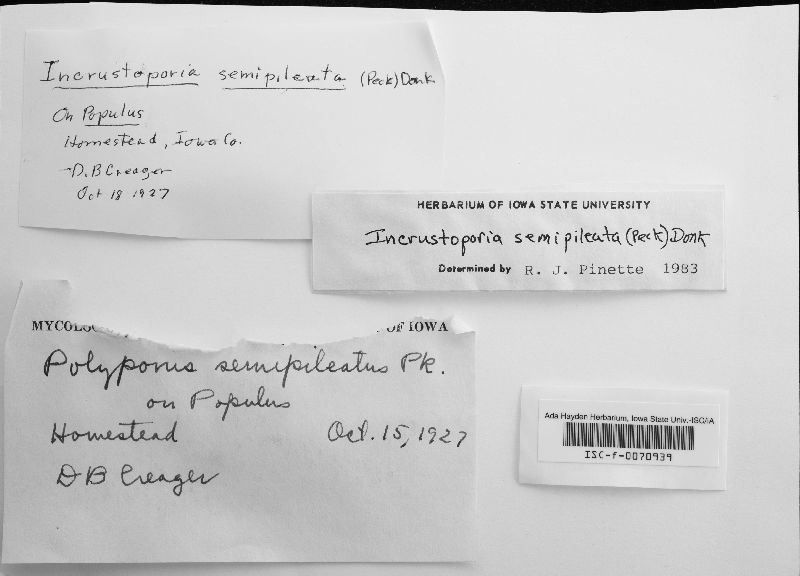 Incrustoporia semipileata (Peck) Donk
On Populus
Homestead, Iowa Co.
D.B Creager
Oct 18 1927
HERBARIUM OF IOWA STATE UNIVERSITY
Incrustoporia semipileata (Peck) Donk
Determined by R. J. Pinette 1983
OF IOWA
Polyporus semipileatus Pk.
on Populus
Homestead Oct. 15, 1927
D B Creager
Ada Hayden Herbarium, Iowa State Univ.-ISC/IA
ISC-f-0070939